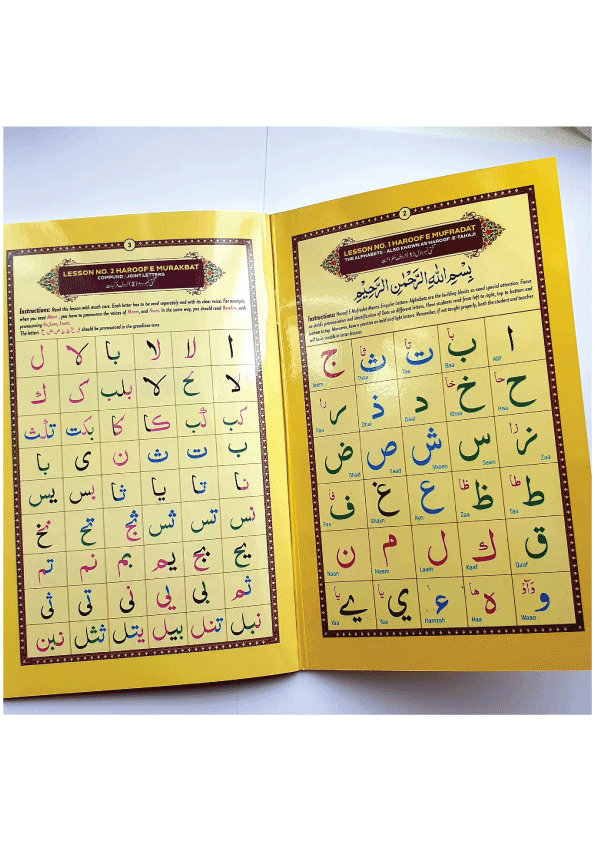 2
LESSON NO. 1 HAROOF E MUFRADAT
THE ALPHABETS - ALSO KNOWN AS HAROOF-E-TAHAJI
بِسْمِ اللهِ الرَّحْمٰنِ الرَّحِيْمِ
Instructions: Haroof E Mufradat Means Singular Letters. Alphabets are the building blocks so need special attention. Focus on child's pronunciation and identification of Dots on different letters. Have students read from left to right, top to bottom and bottom to top. Moreover, have a practice on bold and light letters. Remember, if not taught properly, both the student and teacher will be in trouble in latter lessons.
ا ب با ت تا ث ثا ج
Alif Baa Taa Thaa Jeem
ح حا خ خا د ذ ر را
Haa Khaa Daal Dhal Raa
ز زا س ش ص ض
Zaa Seen Sheen Saad Dhad
ط طا ظ ظا ع غ ف فا
Taa Zaa Ayn Ghayn Faa
ق ك ل م ن
Qaaf Kaaf Laam Meem Noon
و وَاوْ ه ها ء ي يا ے يا
Waao Haa Hamzah Yaa Yaa
3
LESSON NO. 2 HAROOF E MURAKBAT
COMPUND / JOINT LETTERS
Instructions: Read this lesson with much care. Each letter has to be read separately and with its clear voice. For example, when you read Meem, you have to pronounce the voices of Meem, and Noon. In the same way, you should read
pronouncing
The letters should be pronounced in the grandiose tone.
ا لا لا با لا ل
لا لا بلب ک ك
كب كب كا كا بكت تلث
ب ت ث ن ى با
نا تا يا ثا بس يس
نس تس ثس ثج تح نخ
يح بج يم بم نم تم
ثم بى يى نى تى ثى
نبل تنل بيل يتل ثثل نبن